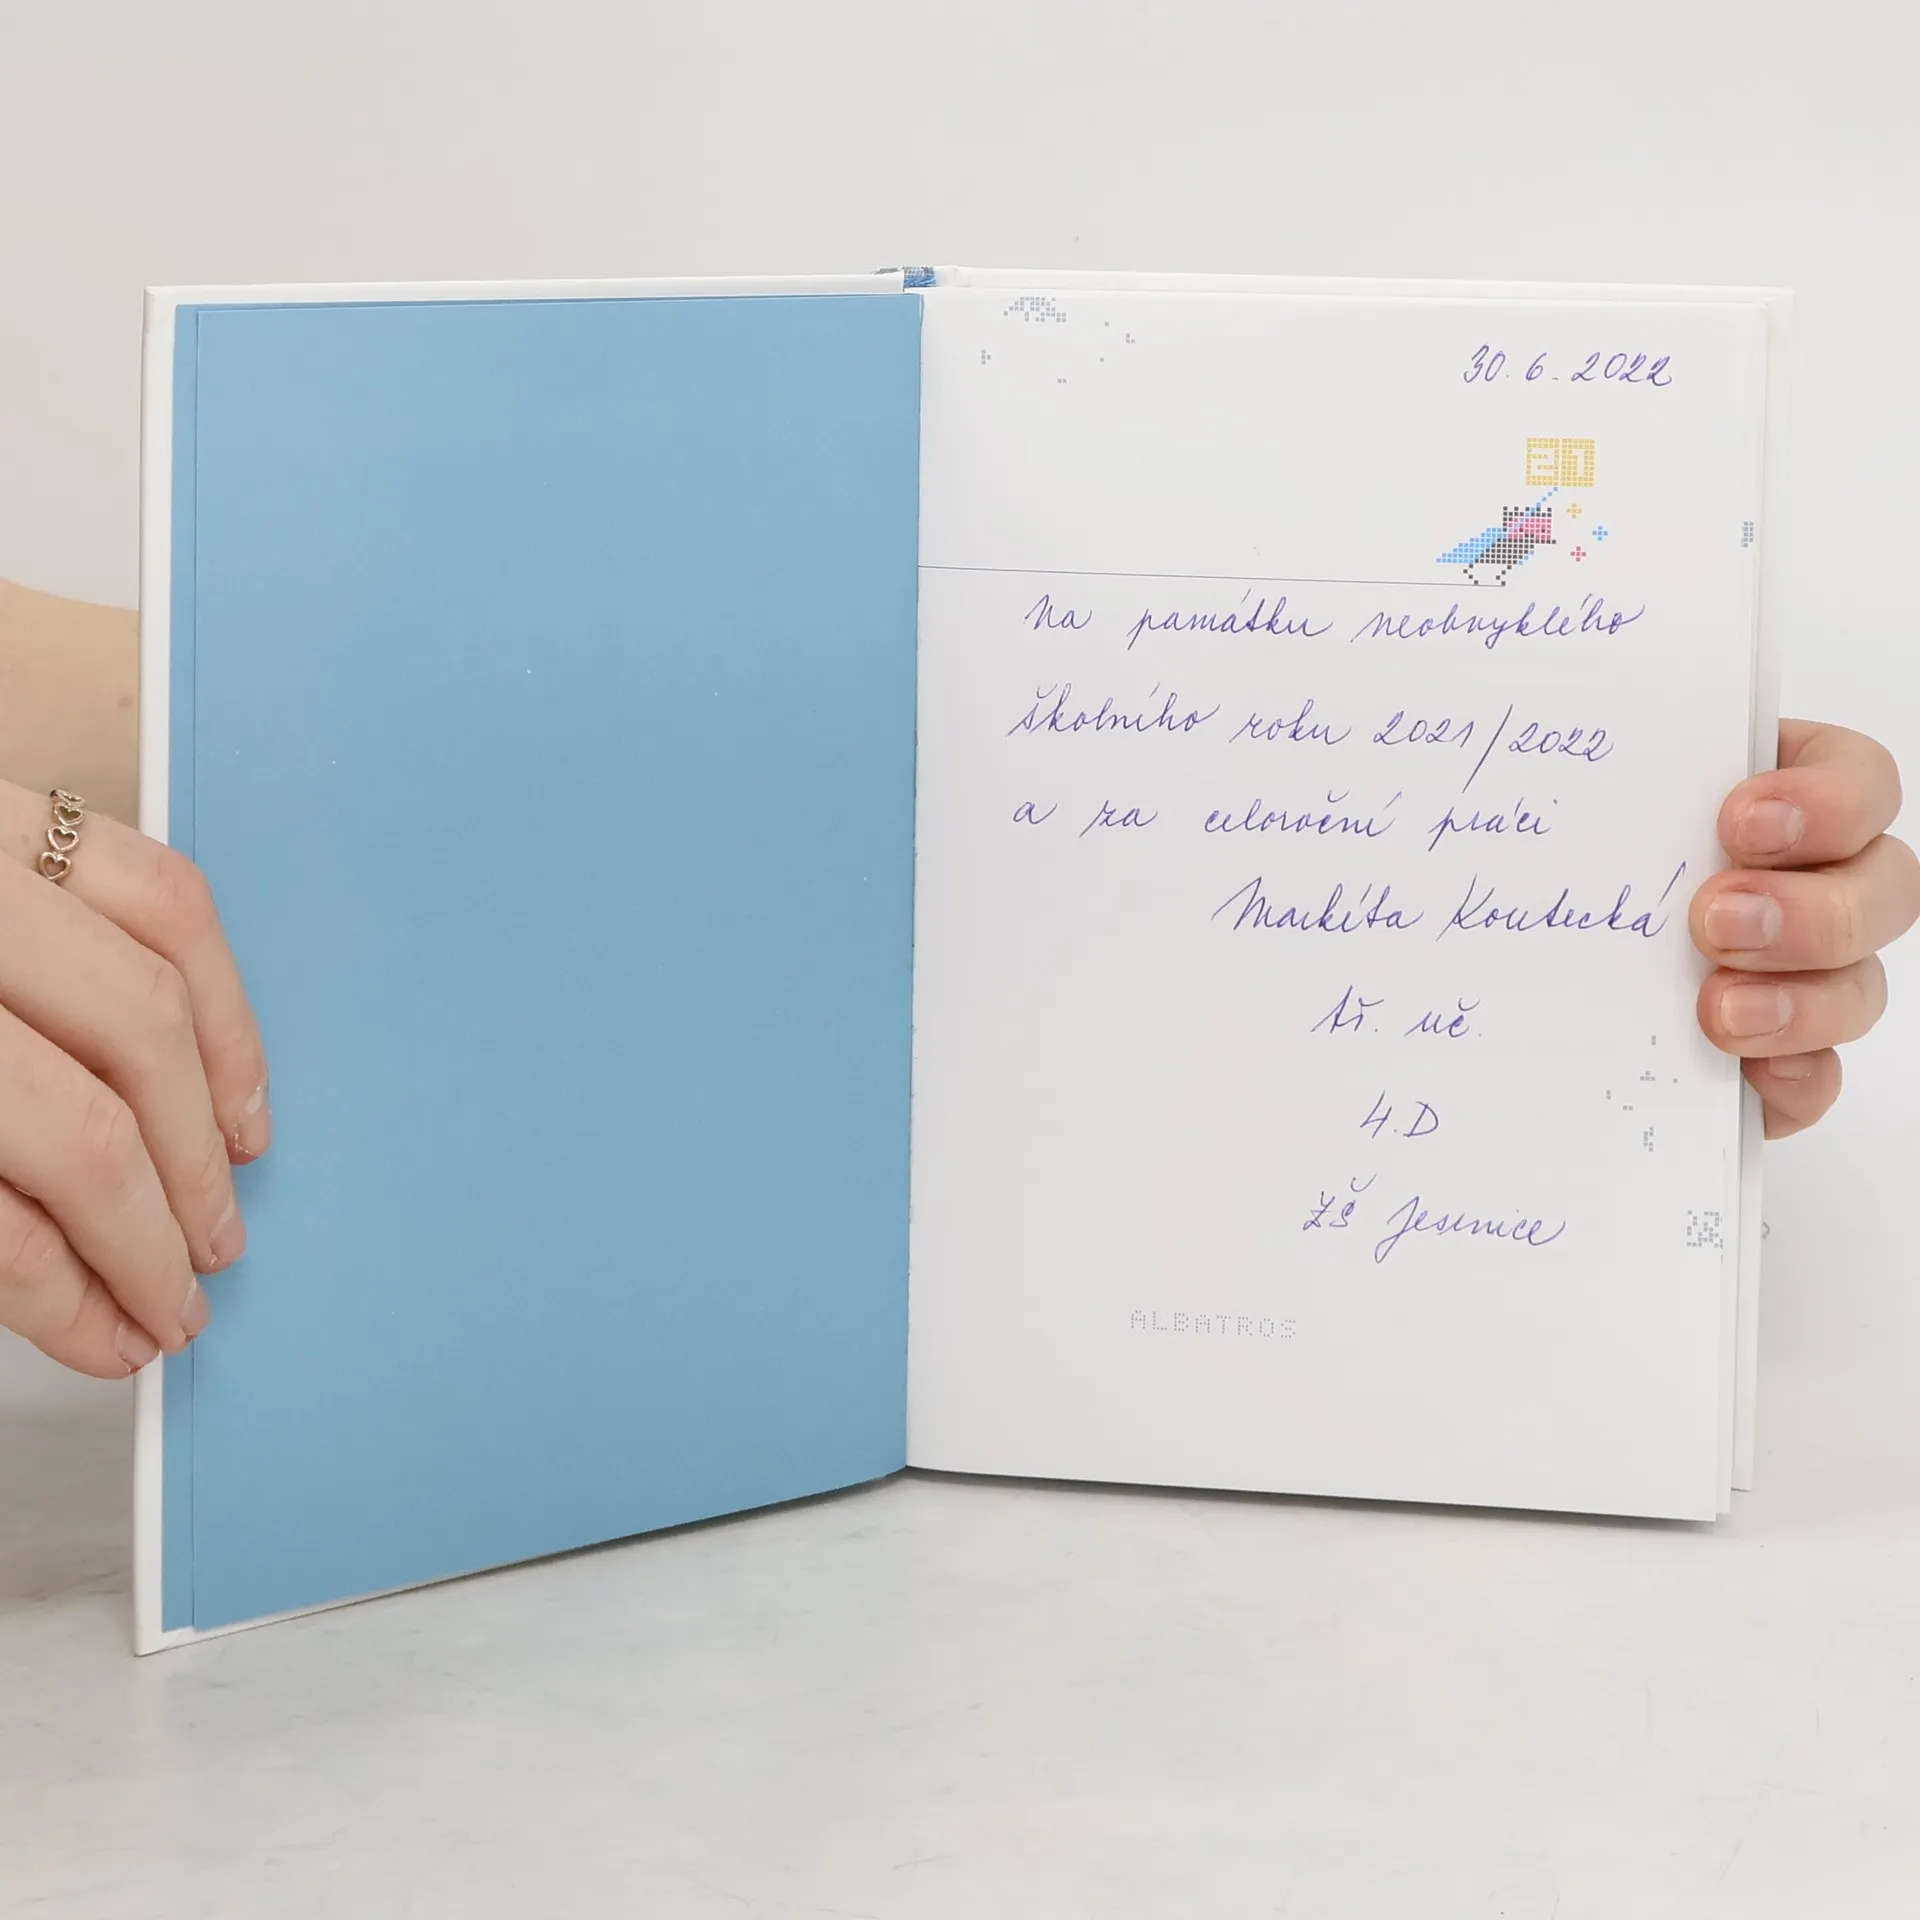 30. 6. 2022
Na památku neobvyklého
školního roku 2021/2022
a za celoroční práci
Markéta Koutecká
tř. uč.
4.D
ZŠ Jesenice
ALBATROS